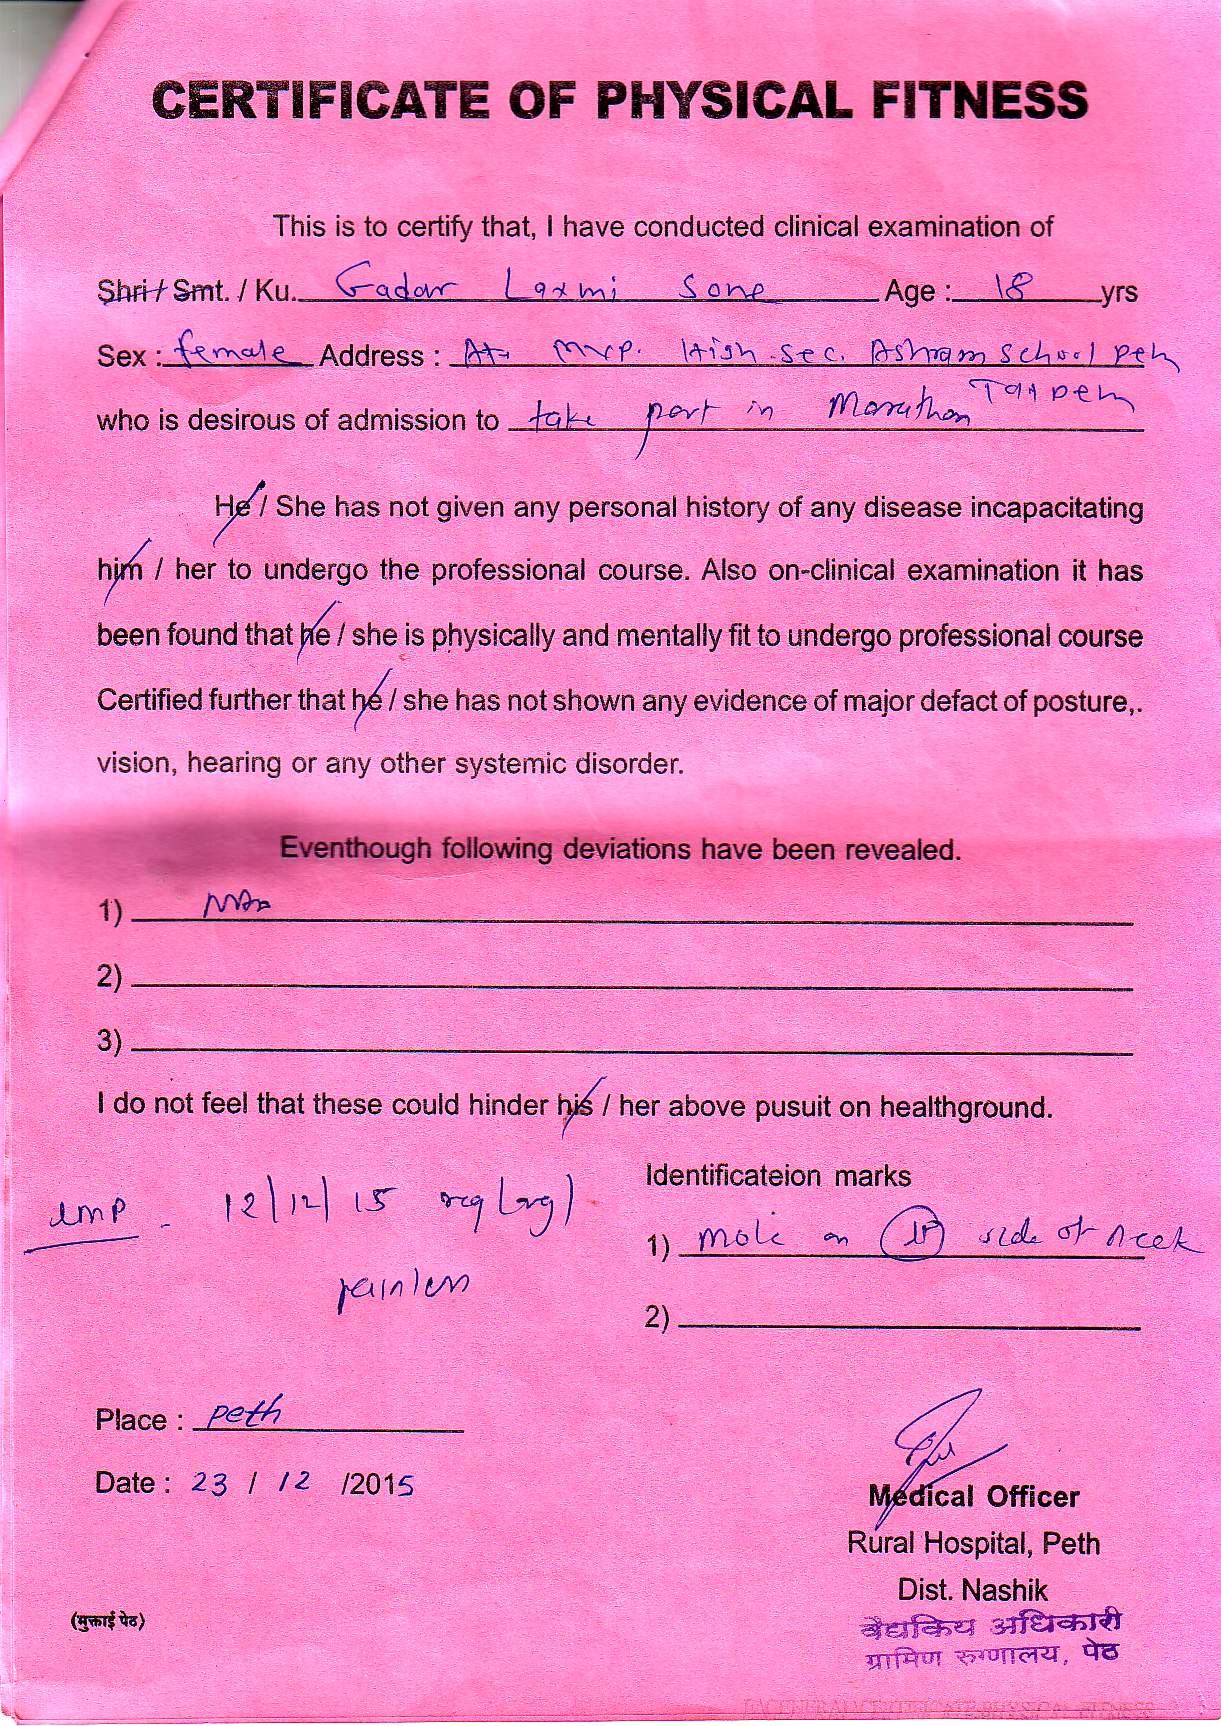 CERTIFICATE OF PHYSICAL FITNESS
This is to certify that, I have conducted clinical examination of
Shri / Smt. / Ku. Gadar Laxmi Sone Age : 18 yrs
Sex : female Address : At High. sec. Ashram school peth
Tal peth
who is desirous of admission to take part in Marathon
He / She has not given any personal history of any disease incapacitating
him / her to undergo the professional course. Also on-clinical examination it has
been found that he / she is physically and mentally fit to undergo professional course
Certified further that he / she has not shown any evidence of major defact of posture,.
vision, hearing or any other systemic disorder.
Eventhough following deviations have been revealed.
1)
2)
3)
I do not feel that these could hinder his / her above pusuit on healthground.
Identificateion marks
LMP - 12/12/15 reg
1) mole on side of neck
painless
2)
Place : peth
Date : 23 / 12 /2015
Medical Officer
Rural Hospital, Peth
Dist. Nashik
वैद्यकिय अधिकारी
(मुक्ताई पेठ)
ग्रामिण रुग्णालय, पेठ